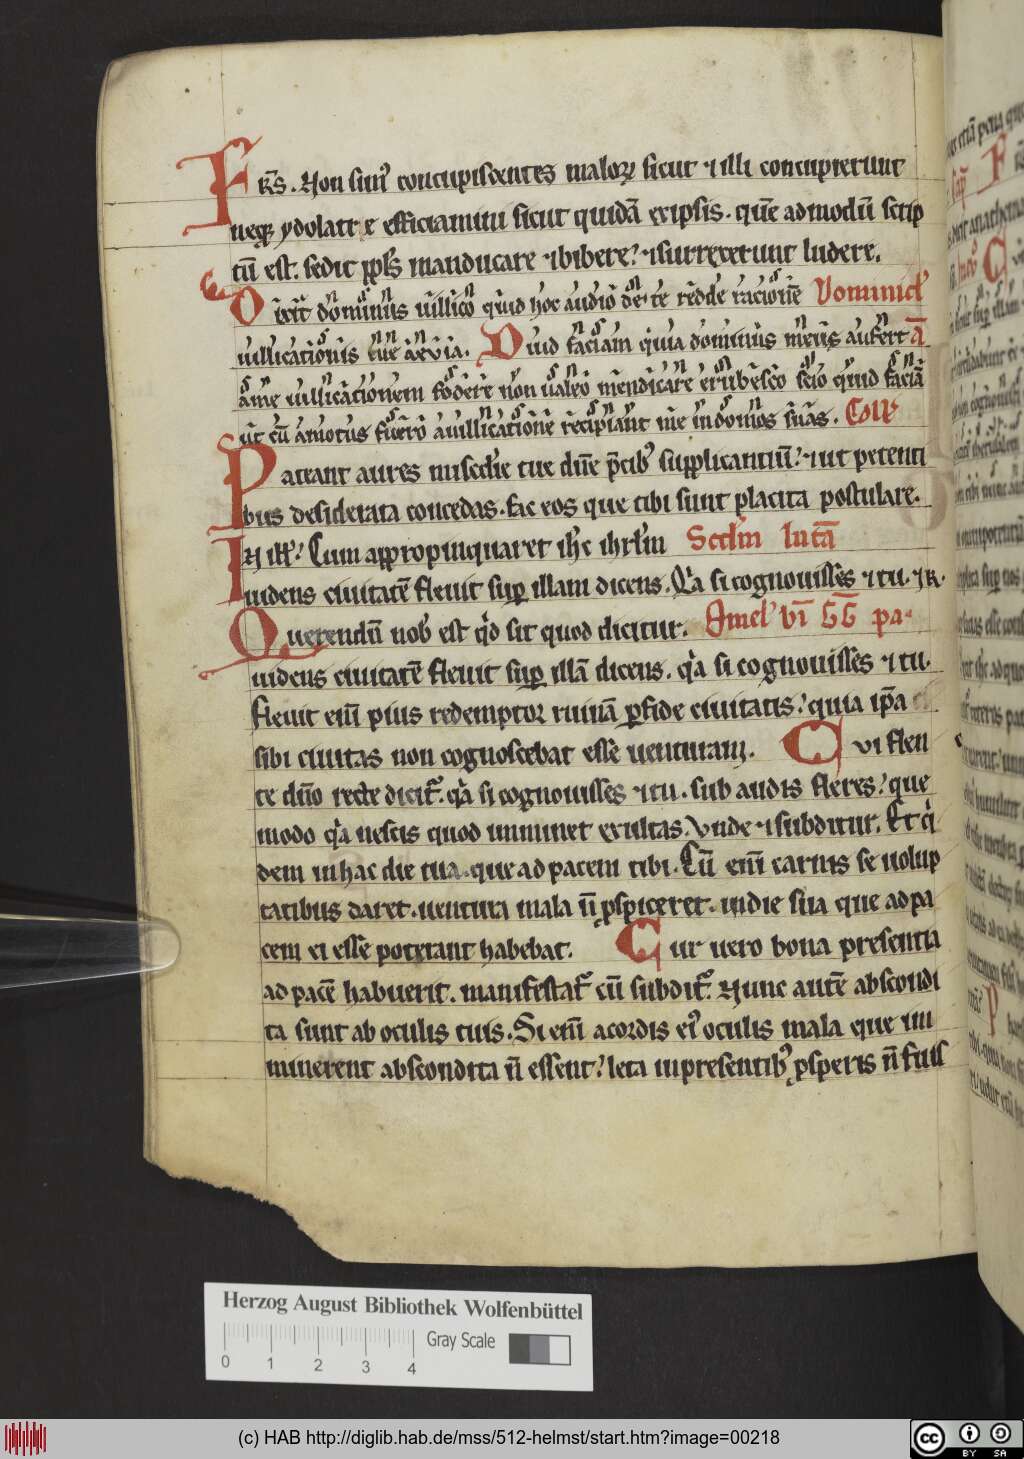 Frs̄. Non sim᷒ concupiscentes maloꝝ sicut ⁊ illi concupierunt
neqꝫ ydolatre efficiamini sicut quidā exipsis. quē admodū scrip
tū est. sedit ppl̄s manducare ⁊bibere? ⁊surrexerunt ludere.
Dixit dominus uillico quid hoc audio de te redde racionē Dominicꝰ
uillicationis tue aevia. Quid faciam quia dominus meus aufert a
ame uillicationem fodere non ualeo mendicare erubesco scio quid faciā
ut cū amotus fuero auillicatione recipiant me indomos suas. Coll
Pateant aures misc̄die tue dn̄e p̄cib᷒ supplicantiū? ⁊ut petenti
bus desiderata concedas. fac eos que tibi sunt placita postulare.
IN ill̄. Cum appropinquaret ih̄c ihrl̄m Scd̄m lucā
uidens ciuitatē fleuit suꝑ illam dicens. Qa si cognouisses ⁊ tu. ⁊R.
Querendū nob᷒ est qd sit quod dicitur. Omel᷒ bī GG pa.
uidens ciuitatē fleuit suꝑ illā dicens. qa si cognouisses ⁊ tu.
fleuit eni pius redemptor ruinā ꝑfide ciuitatis? quia ip̄a
sibi ciuitas non cognoscebat esse uenturam. Cvi flen
te dn̄o recte dicit. qa si cognouisses ⁊ tu. sub audis fleres? que
modo qa nescis quod imminet exultas. Vnde ⁊subditur. Et qi
dem inhac die tua. que ad pacem tibi. Cū eni carnis se uolup
tatibus daret. uentura mala n̄ ꝓspiceret. indie sua que adpa
cem ei esse poterant habebat. Cur uero bona presentia
ad pacē habuerit. manifestat cū subdit. Nunc autē abscondi
ta sunt ab oculis tuis. Si eni acordis ei᷒ oculis mala que im
minerent abscondita n̄ essent? leta inpresentib᷒ ꝓsperis n̄ fuis
Herzog August Bibliothek Wolfenbüttel
Gray Scale
0 1 2 3 4
(c) HAB http://diglib.hab.de/mss/512-helmst/start.htm?image=00218
cc BY SA